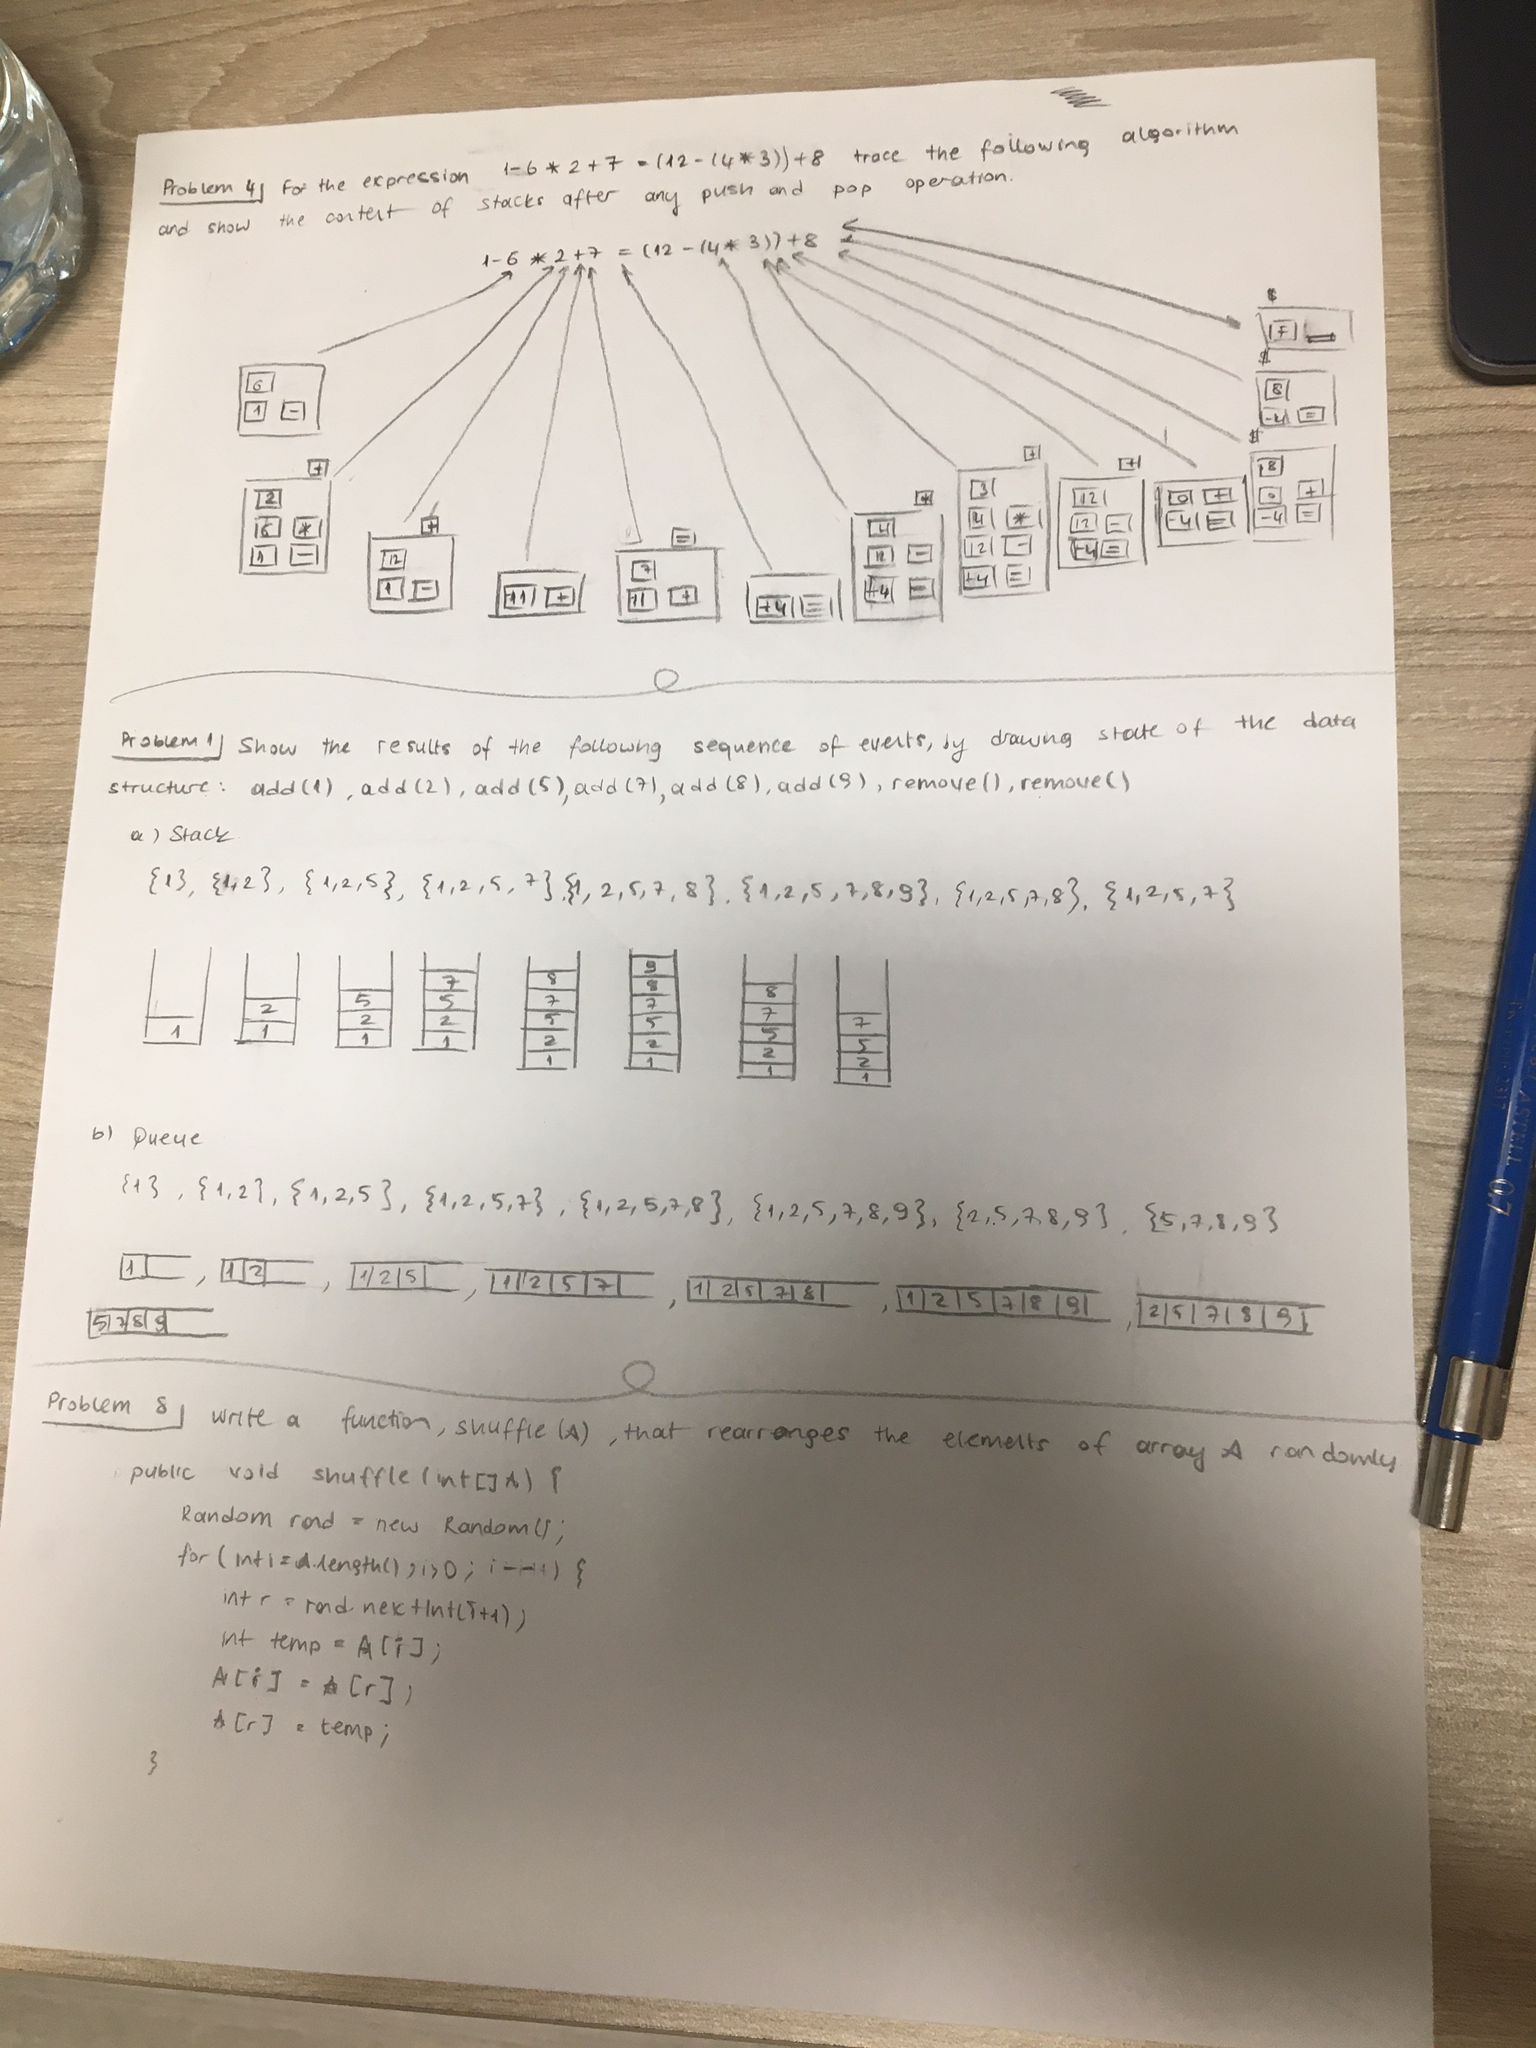 Problem 4 For the expression 1-6*2+7=(12-(4*3))+8 trace the following algorithm
and show the contert of stacks after any push and pop operation.
1-6*2+7=(12-(4*3))+8
$
F
$
8
-4 =
$
6
1 -
+
2
6 *
1 -
+
12
1 -
11 +
=
7
11 +
+4 =
*
4
12 -
+4 =
+
3
4 *
12 -
+4 =
+
12
12 -
+4 =
0 +
-4 =
8
0 +
-4 =
Problem 1 Show the results of the following sequence of everts, by drawing state of the data
structure: add(1), add(2), add(5), add(7), add(8), add(9), remove(), remove()
a) Stack
{1}, {1,2}, {1,2,5}, {1,2,5,7}, {1,2,5,7,8}, {1,2,5,7,8,9}, {1,2,5,7,8}, {1,2,5,7}
1
2
1
5
2
1
7
5
2
1
8
7
5
2
1
9
8
7
5
2
1
8
7
5
2
1
7
5
2
1
b) Queue
{1}, {1,2}, {1,2,5}, {1,2,5,7}, {1,2,5,7,8}, {1,2,5,7,8,9}, {2,5,7,8,9}, {5,7,8,9}
1 , 1 2 , 1 2 5 , 1 2 5 7 , 1 2 5 7 8 , 1 2 5 7 8 9 , 2 5 7 8 9
5 7 8 9
Problem 8 write a function, shuffle(A), that rearranges the elemelts of array A randomly
public void shuffle(int[]A) {
Random rand = new Random();
for(int i=A.length(); i>0; i--) {
int r = rand.nextInt(i+1);
int temp = A[i];
A[i] = A[r];
A[r] = temp;
}